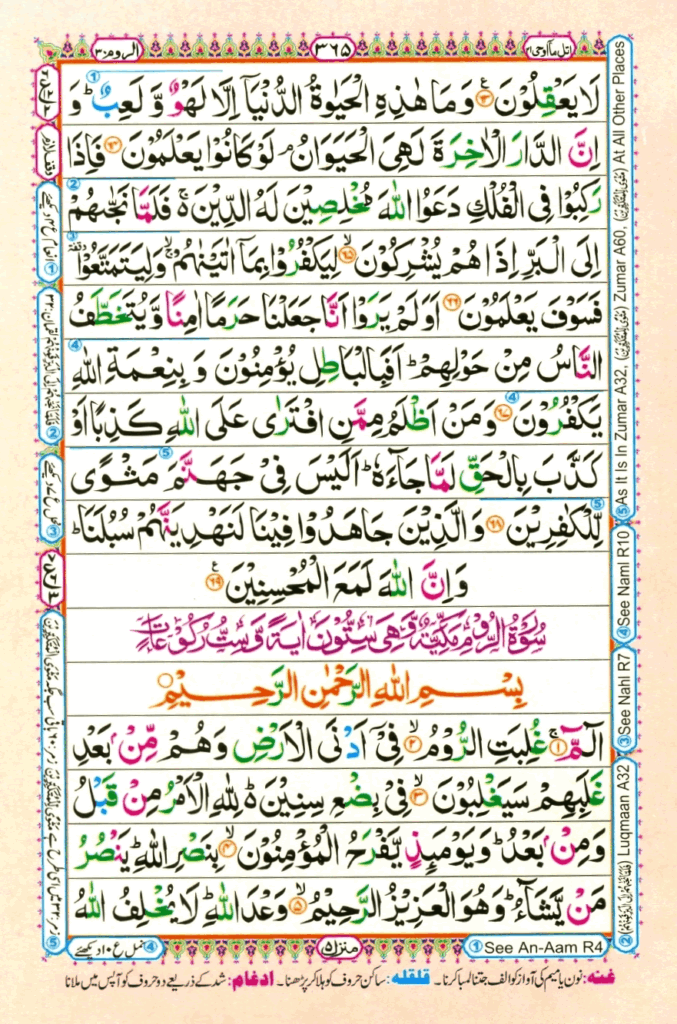 اتل مآ اوحی ۲۱
۳۶۵
الروم ۳۰
لَا يَعْقِلُوْنَ ۟۶۳ وَمَا هٰذِهِ الْحَيٰوةُ الدُّنْيَآ اِلَّا لَهْوٌ وَّ لَعِبٌ ؕ وَ
اِنَّ الدَّارَ الْاٰخِرَةَ لَهِيَ الْحَيَوَانُ ۘ لَوْ كَانُوْا يَعْلَمُوْنَ ۶۴ فَاِذَا
رَكِبُوْا فِي الْفُلْكِ دَعَوُا اللّٰهَ مُخْلِصِيْنَ لَهُ الدِّيْنَ ۚ۬ فَلَمَّا نَجّٰىهُمْ
اِلَى الْبَرِّ اِذَا هُمْ يُشْرِكُوْنَ ۙ۶۵ لِيَكْفُرُوْا بِمَآ اٰتَيْنٰهُمْ ۙۚ وَلِيَتَمَتَّعُوْا ۥ
فَسَوْفَ يَعْلَمُوْنَ ۶۶ اَوَلَمْ يَرَوْا اَنَّا جَعَلْنَا حَرَمًا اٰمِنًا وَّيُتَخَطَّفُ
النَّاسُ مِنْ حَوْلِهِمْ ؕ اَفَبِالْبَاطِلِ يُؤْمِنُوْنَ وَ بِنِعْمَةِ اللّٰهِ
يَكْفُرُوْنَ ۶۷ وَمَنْ اَظْلَمُ مِمَّنِ افْتَرٰى عَلَى اللّٰهِ كَذِبًا اَوْ
كَذَّبَ بِالْحَقِّ لَمَّا جَآءَهٗ ؕ اَلَيْسَ فِيْ جَهَنَّمَ مَثْوًى
لِّلْكٰفِرِيْنَ ۶۸ وَالَّذِيْنَ جَاهَدُوْا فِيْنَا لَنَهْدِيَنَّهُمْ سُبُلَنَا ؕ
وَاِنَّ اللّٰهَ لَمَعَ الْمُحْسِنِيْنَ ۟۶۹
سُوْرَةُ الرُّوْمِ مَكِّيَّةٌ وَّهِيَ سِتُّوْنَ اٰيَةً وَّسِتُّ رُكُوْعَاتٍ
بِسْمِ اللّٰهِ الرَّحْمٰنِ الرَّحِيْمِ
الٓمّٓ ۚ۱ غُلِبَتِ الرُّوْمُ ۙ۲ فِيْٓ اَدْنَى الْاَرْضِ وَهُمْ مِّنْۢ بَعْدِ
غَلَبِهِمْ سَيَغْلِبُوْنَ ۙ۳ فِيْ بِضْعِ سِنِيْنَ ؕ۬ لِلّٰهِ الْاَمْرُ مِنْ قَبْلُ
وَمِنْۢ بَعْدُ ؕ وَيَوْمَئِذٍ يَّفْرَحُ الْمُؤْمِنُوْنَ ۙ۴ بِنَصْرِ اللّٰهِ ؕ يَنْصُرُ
مَنْ يَّشَآءُ ؕ وَهُوَ الْعَزِيْزُ الرَّحِيْمُ ۙ۵ وَعْدَ اللّٰهِ ؕ لَا يُخْلِفُ اللّٰهُ
① See An-Aam R4
منزل ۵
④ نمل ع ۱۰ دیکھئے
غنہ: نون یا میم کی آواز کو الف جتنا لمبا کرنا۔ قلقلہ: ساکن حروف کو ہلا کر پڑھنا۔ ادغام: شد کے ذریعے دو حروف کو آپس میں ملانا
② Luqmaan A32
③ See Nahl R7
④ See Naml R10
⑤ As It Is In Zumar A32, Zumar A60, At All Other Places